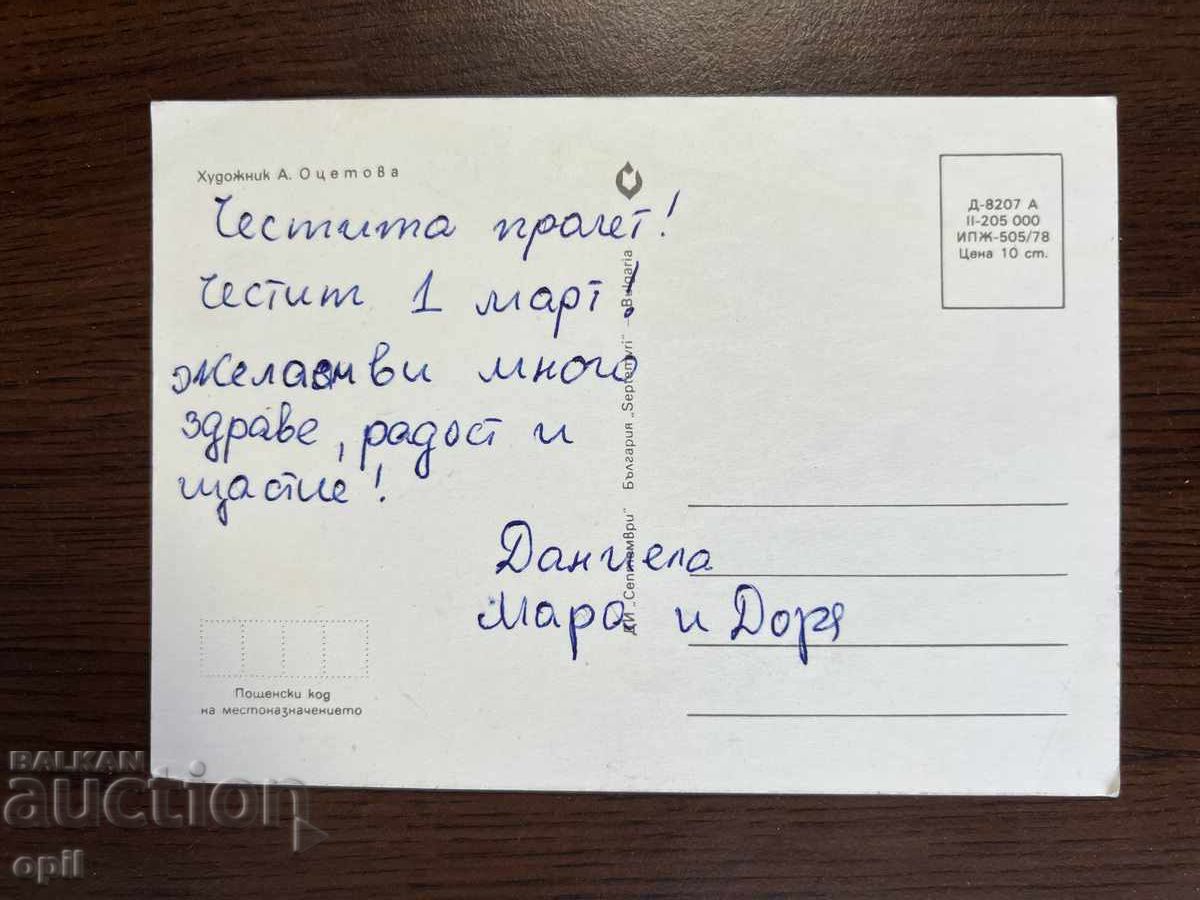 Художник А. Оцетова
Д-8207 А
II-205 000
ИПЖ-505/78
Цена 10 ст.
Честита пролет!
Честит 1 март!
Желаем ви много
здраве, радост и
щастие!
Даниела
Мара и Доря
ДИ „Септември" България „Septemvri" – Bulgaria
Пощенски код
на местоназначението
BALKAN
auction
opil